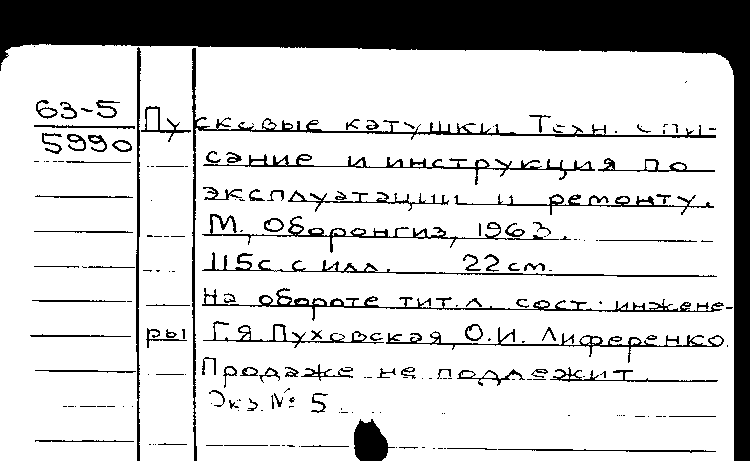 63-5
5990
Пусковые катушки. Техн. опи-
сание и инструкция по
эксплуатации и ремонту.
М., Оборонгиз, 1963.
115с. с илл. 22 cm.
На обороте тит.л. сост.: инжене-
ры Г.Я. Пуховская, О.И. Лиференко.
Продаже не подлежит.
Экз. № 5